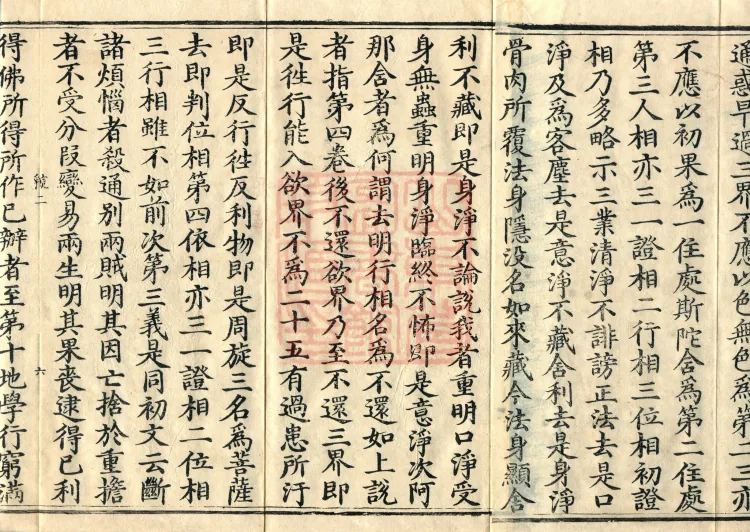 通惑早過三界不應以色無色為第二三亦
不應以初果為一住處斯陀舍為第二住處
第三人相亦三一證相二行相三位相初證
相乃多略示三業清淨不誹謗正法去是口
淨及為客塵去是意淨不藏舍利去是身淨
骨肉所覆法身隱没名如來藏今法身顯舍
利不藏即是身淨不論說我者重明口淨受
身無蟲重明身淨臨終不怖即是意淨次阿
那舍者為何謂去明行相名為不還如上說
者指第四卷後不還欲界乃至不還三界即
是徃行能入欲界不為二十五有過患所汙
即是反行徃反利物即是周旋三名為菩薩
去即判位相第四依相亦三一證相二位相
三行相雖不如前次第三義是同初文云斷
諸煩惱者殺通別兩賊明其因亡捨於重擔
者不受分段變易兩生明其果喪逮得已利
號二
六
得佛所得所作已辦者至第十地學行窮滿